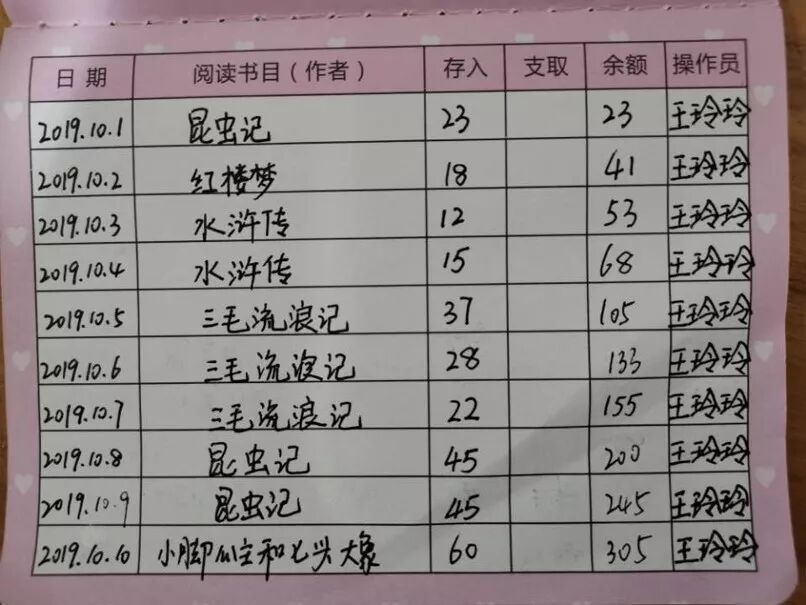 日期 阅读书目(作者) 存入 支取 余额 操作员
2019.10.1 昆虫记 23 23 王玲玲
2019.10.2 红楼梦 18 41 王玲玲
2019.10.3 水浒传 12 53 王玲玲
2019.10.4 水浒传 15 68 王玲玲
2019.10.5 三毛流浪记 37 105 王玲玲
2019.10.6 三毛流浪记 28 133 王玲玲
2019.10.7 三毛流浪记 22 155 王玲玲
2019.10.8 昆虫记 45 200 王玲玲
2019.10.9 昆虫记 45 245 王玲玲
2019.10.10 小脚 和七头大象 60 305 王玲玲